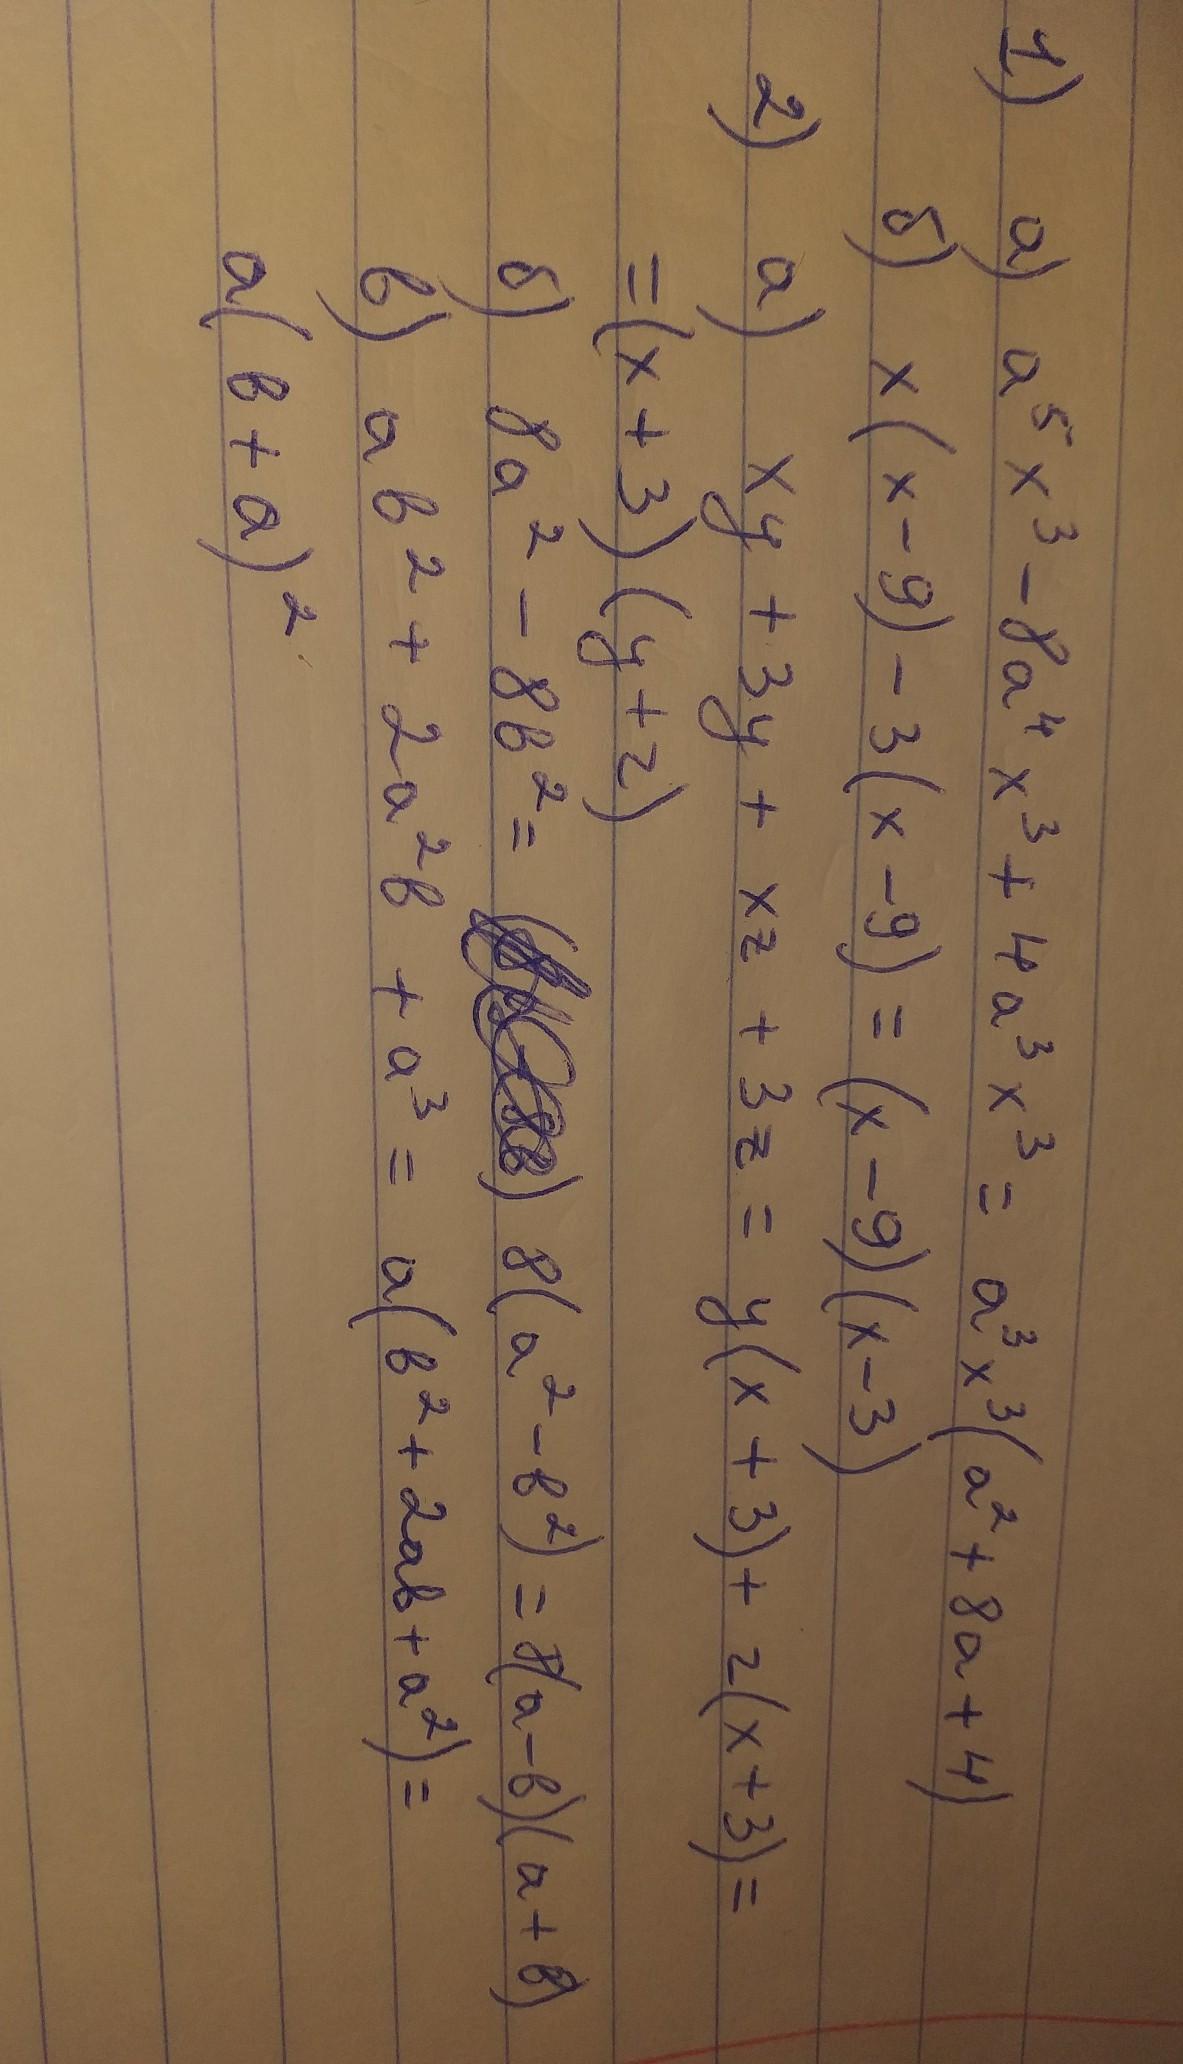 1) а) a⁵x³ - 8a⁴x³ + 4a³x³ = a³x³(a² + 8a + 4)
б) x(x - 9) - 3(x - 9) = (x - 9)(x - 3)
2) а) xy + 3y + xz + 3z = y(x + 3) + z(x + 3) =
= (x + 3)(y + z)
б) 8a² - 8b² = 8(a² - b²) = 8(a - b)(a + b)
в) ab² + 2a²b + a³ = a(b² + 2ab + a²) =
a(b + a)²